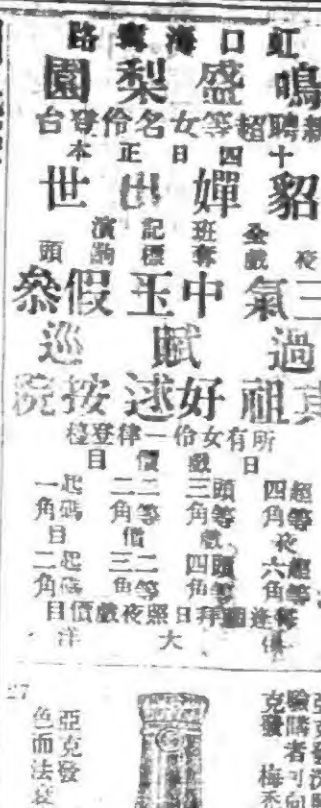 虹口海寗路
鳴盛梨園
新聘超等女名伶登台
十四日正本
貂嬋出世
夜戲全班奪標記演齣頭
三氣中玉假叅
過賦巡
祖好逑按院
所有女伶一律登檯
日戲價目
超等四角
頭等三角
二等二角
起碼一角
夜戲價目
超等六角
頭等四角
二等三角
起碼二角
每逢禮拜日照夜戲價目
大洋
27
亞克發
色而法衰
克發